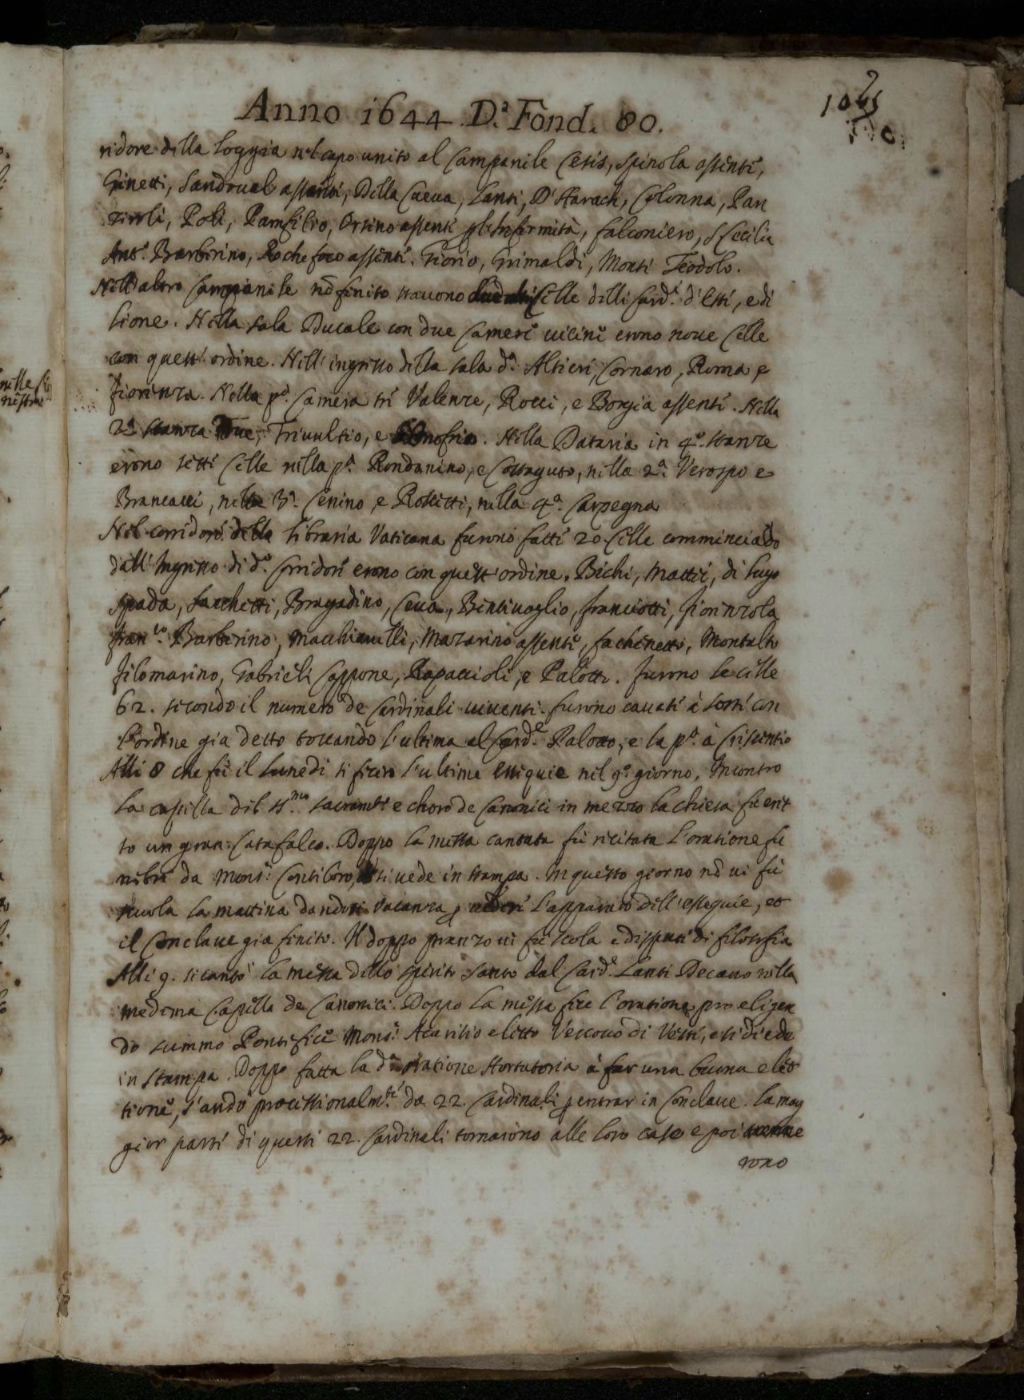 Anno 1644 D.ª Fond. 80.
ridore della loggia nel capo unito al Campanile Cesis, Spinola assenti,
Ginetti, Sandoval assenti, Della Cueva, Lanti, D'Harach, Colonna, Pan
ziroli, Poli, Panfilio, Orsino assenti p infirmità, falconiero, S Cecilia
Ant.º Barberino, Roche foco assenti. Fiorio, Grimaldi, Monti Teodolo.
Nell'altro Campanile nō finito stavono Celle delli Card.i d'Esti, e di
lione. Nella sala Ducale con due Camere vicine erono nove Celle
con questi ordine. Nell'ingresso della sala d.ª Altieri, Cornaro, Roma e
fiorenza. Nella p.ª Camera tri Valenze, Rocci, e Borgia assenti. Nella
2.ª stanza Due, Triuultio, e S Onofrio. Nella Dataria in 4.º stanze
erono setti Celle nella p.ª Rondanino, e Costaguto, nella 2.ª Verospo e
Brancacci, nella 3.ª Cenino e Rossetti, nella 4.ª Carpegna
Nel corridore della libraria Vaticana furno fatti 20 Celle comminciādo
dall'Ingresso di d.º Corridori erono con quest'ordine. Bichi, Mattei, di Lugo
Spada, Sacchetti, Bragadino, Ceva, Bentivoglio, franciotti, fiorenzola
fran.co Barberino, Macchiavelli, Mazarino assenti, fachenetti, Montalto
filomarino, Gabrieli Cappone, Rapaccioli, e Palotti. furono le Celle
62. secondo il numero de Cardinali viventi. furono cavati à sorti con
l'ordine gia detto toccando l'ultima al Card.l Palotto, e la p.ª à Criscentio
Alli 8 che fù il Lunedi si fecero l'ultime essequie nel 9.º giorno, Incontro
la capella del SS.mo sacramto e choro de Canonici in mezzo la chiesa fù erit
to un gran Catafalco. Doppo la messa cantata fù recitata l'oratione fu
nebre da Mons.r si vede in stampa. In questo giorno nō vi fù
scuola la mattina dandosi vacanza p vedere l'apparato dell'essequie, et
il Conclave gia finito. Il doppo pranzo vi fù scola e disputa di filosofia
Alli 9. si cantò la messa dello spirito santo dal Card.l Lanti Decano nella
medema Capella de Canonici. Doppo la messa fece l'oratione pro eligen
do summo Pontefice Mons.r eletto Vescovo di Vesti, e si diede
in stampa. Doppo fatta la d.ª oratione Hortatoria à far una buona elet
tione, s'andò processionalm.te da 22 Cardinali p entrar in Conclave. La mag
gior parti di questi 22. Cardinali tornarono alle loro case e poi venne
rono